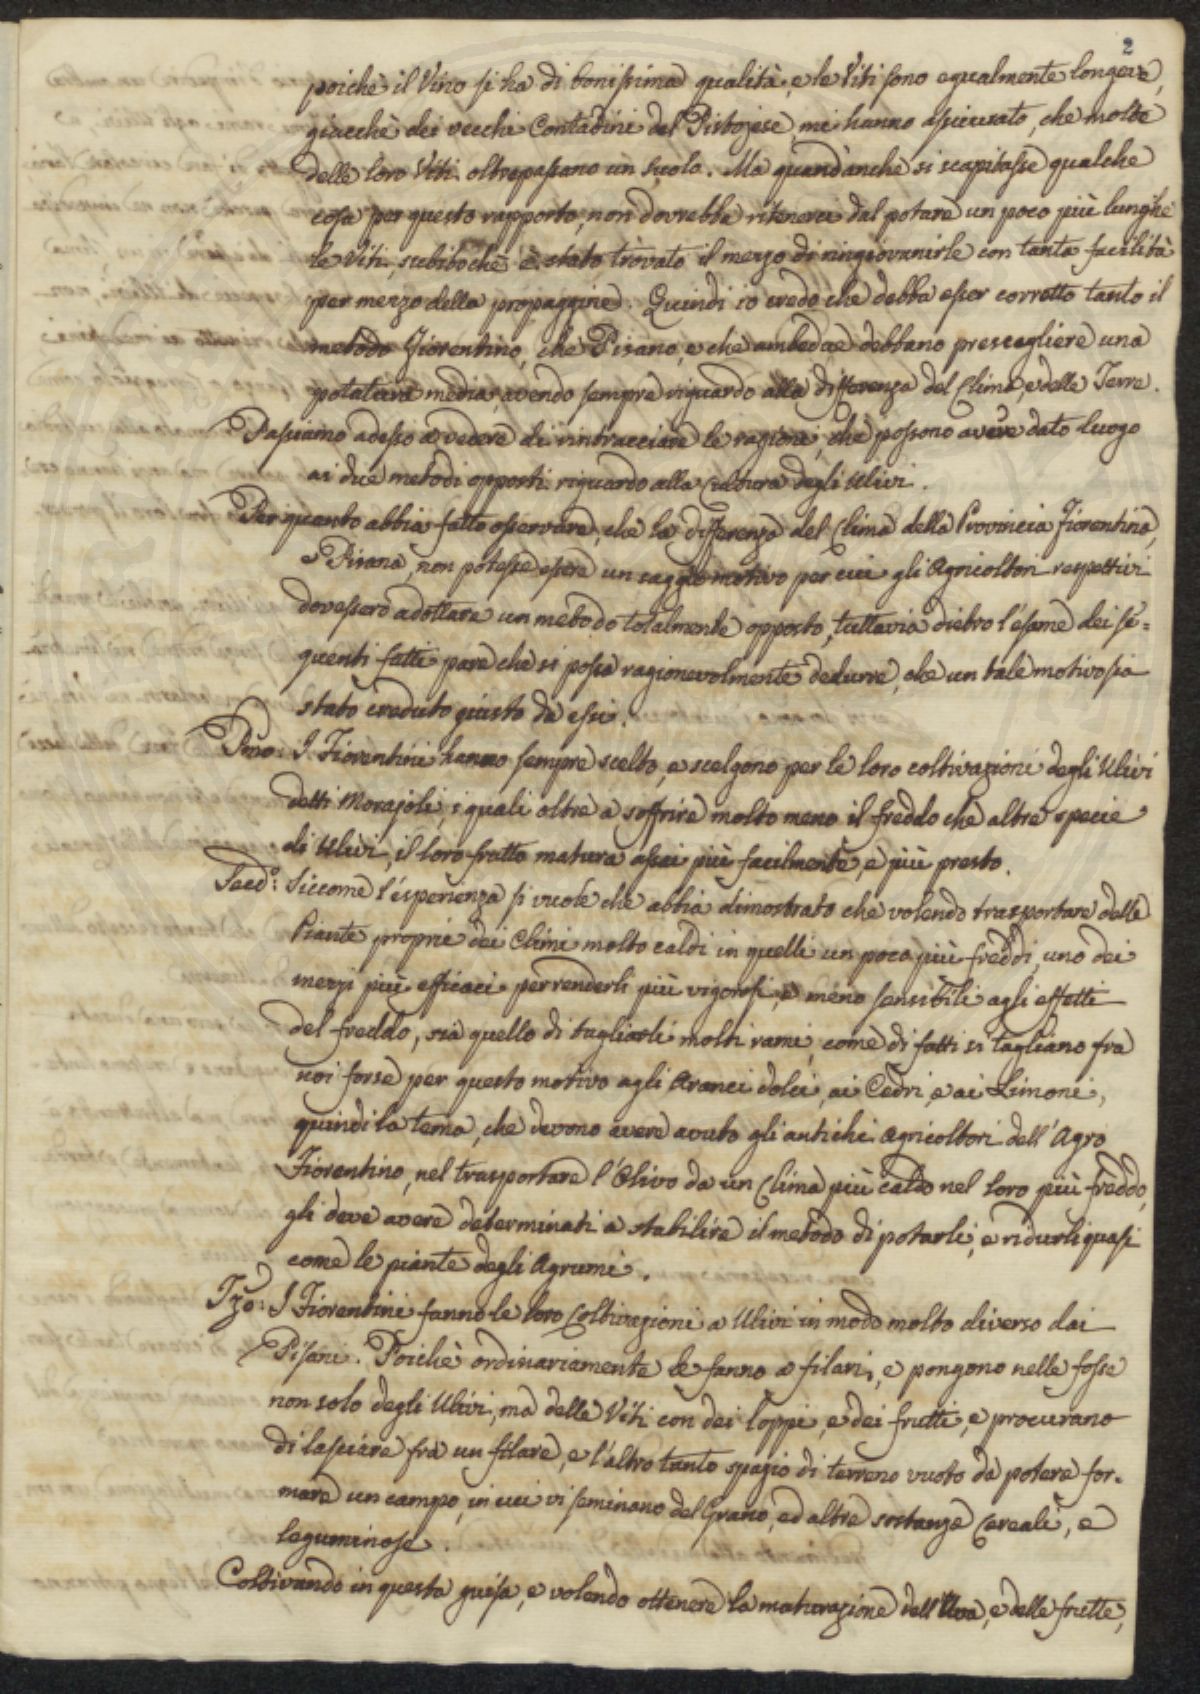 2
poichè il Vino si ha di bonissima qualità, e le Viti sono egualmente longeve,
giacchè dei vecchi Contadini del Pistojese mi hanno assicurato, che molte
delle loro Viti oltrepassano un secolo. Ma quand'anche si scapitasse qualche
cosa per questo rapporto, non dovrebbe ritenerci dal potare un poco più lunghe
le Viti, subitochè è stato trovato il mezzo di ringiovanirle con tanta facilità
per mezzo della propaggine. Quindi io credo che debba esser corretto tanto il
metodo Fiorentino, che Pisano, e che ambedue debbano prescegliere una
potatura media, avendo sempre riguardo alla differenza del Clima, e delle Terre.
Passiamo adesso a vedere di rintracciare le ragioni, che possono avere dato luogo
ai due metodi opposti riguardo alla Cultura degli Ulivi.
Per quanto abbia fatto osservare, che la differenza del Clima della Provincia Fiorentina,
e Pisana, non potesse essere un saggio motivo per cui gli Agricoltori respettivi
dovessero adottare un metodo totalmente opposto, tuttavia dietro l'esame dei se=
guenti fatti pare che si possa ragionevolmente dedurre, che un tale motivo sia
stato creduto giusto da essi.
Pmo: I Fiorentini hanno sempre scelto, e scelgono per le loro coltivazioni degli Ulivi
detti Morajoli, i quali oltre a soffrire molto meno il freddo che altre specie
di Ulivi, il loro frutto matura assai più facilmente, e più presto.
Secd:o Siccome l'esperienza si vuole che abbia dimostrato che volendo trasportare delle
Piante proprie dei Climi molto caldi in quelli un poco più freddi, uno dei
mezzi più efficaci per renderli più vigorosi, e meno sensibili agli effetti
del freddo, sia quello di tagliarli molti rami, come di fatti si tagliano fra
noi forse per questo motivo agli Aranci dolci, ai Cedri, e ai Limoni,
quindi la tema, che devono avere avuto gli antichi Agricoltori dell'Agro
Fiorentino, nel trasportare l'Olivo da un Clima più caldo nel loro più freddo,
gli deve avere determinati a stabilire il metodo di potarli, e ridurli quasi
come le piante degli Agrumi.
Tzo: I Fiorentini fanno le loro Coltivazioni a Ulivi in modo molto diverso dai
Pisani. Poichè ordinariamente le fanno a filari, e pongono nelle fosse
non solo degli Ulivi, ma delle Viti con dei loppi, e dei frutti, e procurano
di lasciare fra un filare, e l'altro tanto spazio di terreno vuoto da potere for=
mare un campo, in cui vi seminano del Grano, ed altre sostanze Cereali, e
leguminose.
Coltivando in questa guisa, e volendo ottenere la maturazione dell'Uva, e delle frutte,